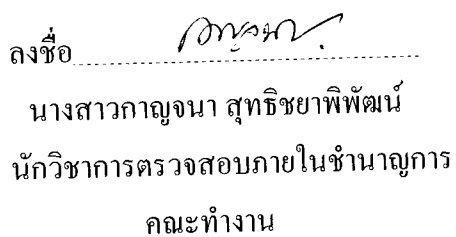 ลงชื่อ
นางสาวกาญจนา สุทธิชยาพิพัฒน์
นักวิชาการตรวจสอบภายในชำนาญการ
คณะทำงาน